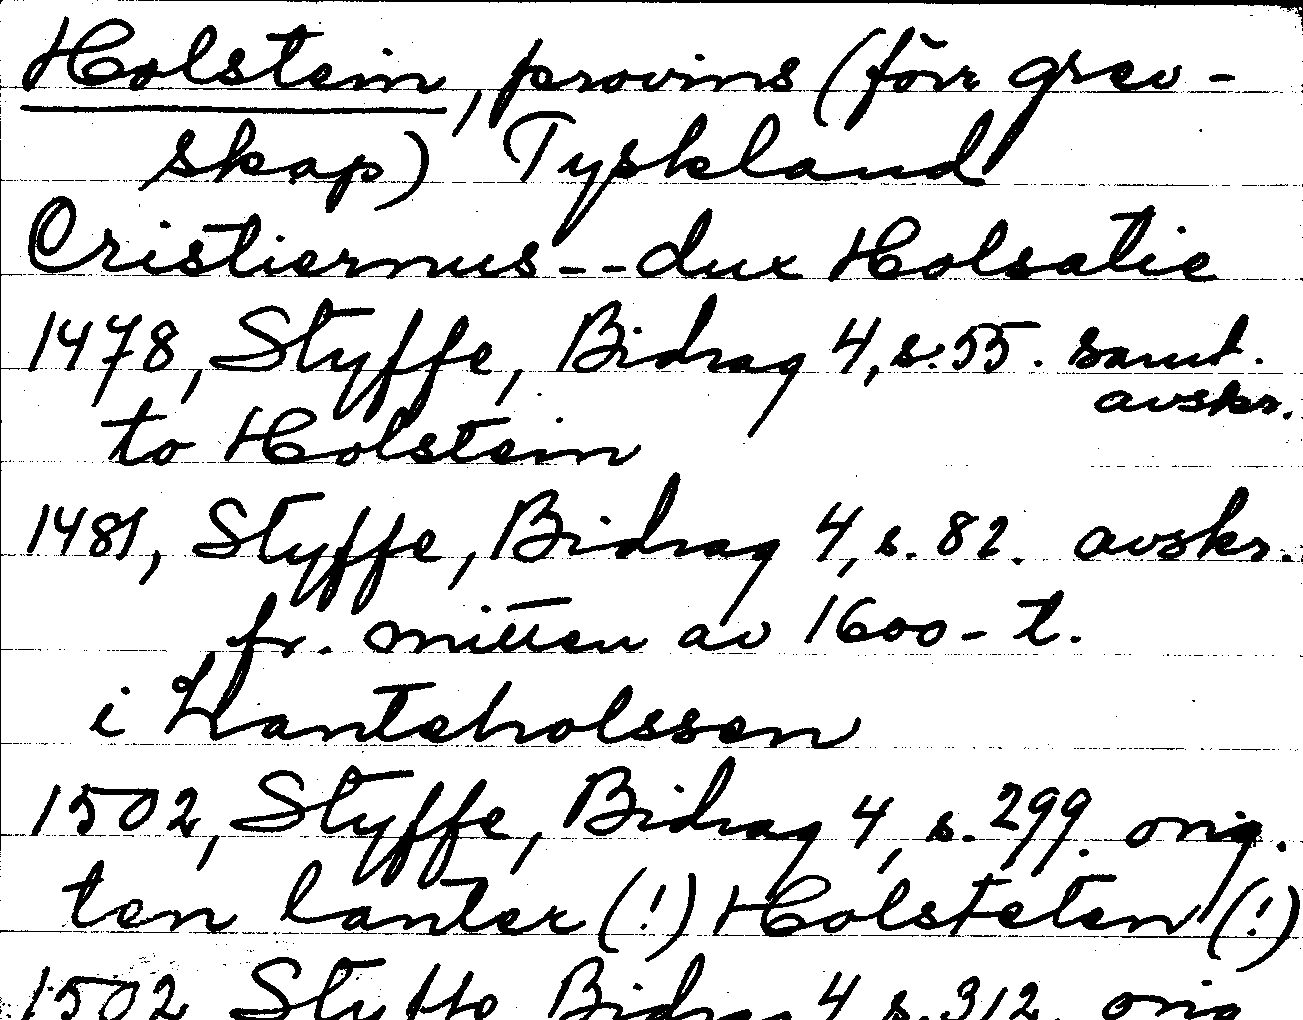 Holstein, provins (förr grev-
skap) Tyskland
Cristiernus -- dux Holsatie
1478, Styffe, Bidrag 4, s. 55. samt.
avskr.
to Holstein
1481, Styffe, Bidrag 4, s. 82. avskr.
fr. mitten av 1600-t.
i Lanteholssen
1502, Styffe, Bidrag 4, s. 299. orig.
ten lanter (!) Holsteten (!)
1502 Styffe Bidrag 4 s. 312. orig